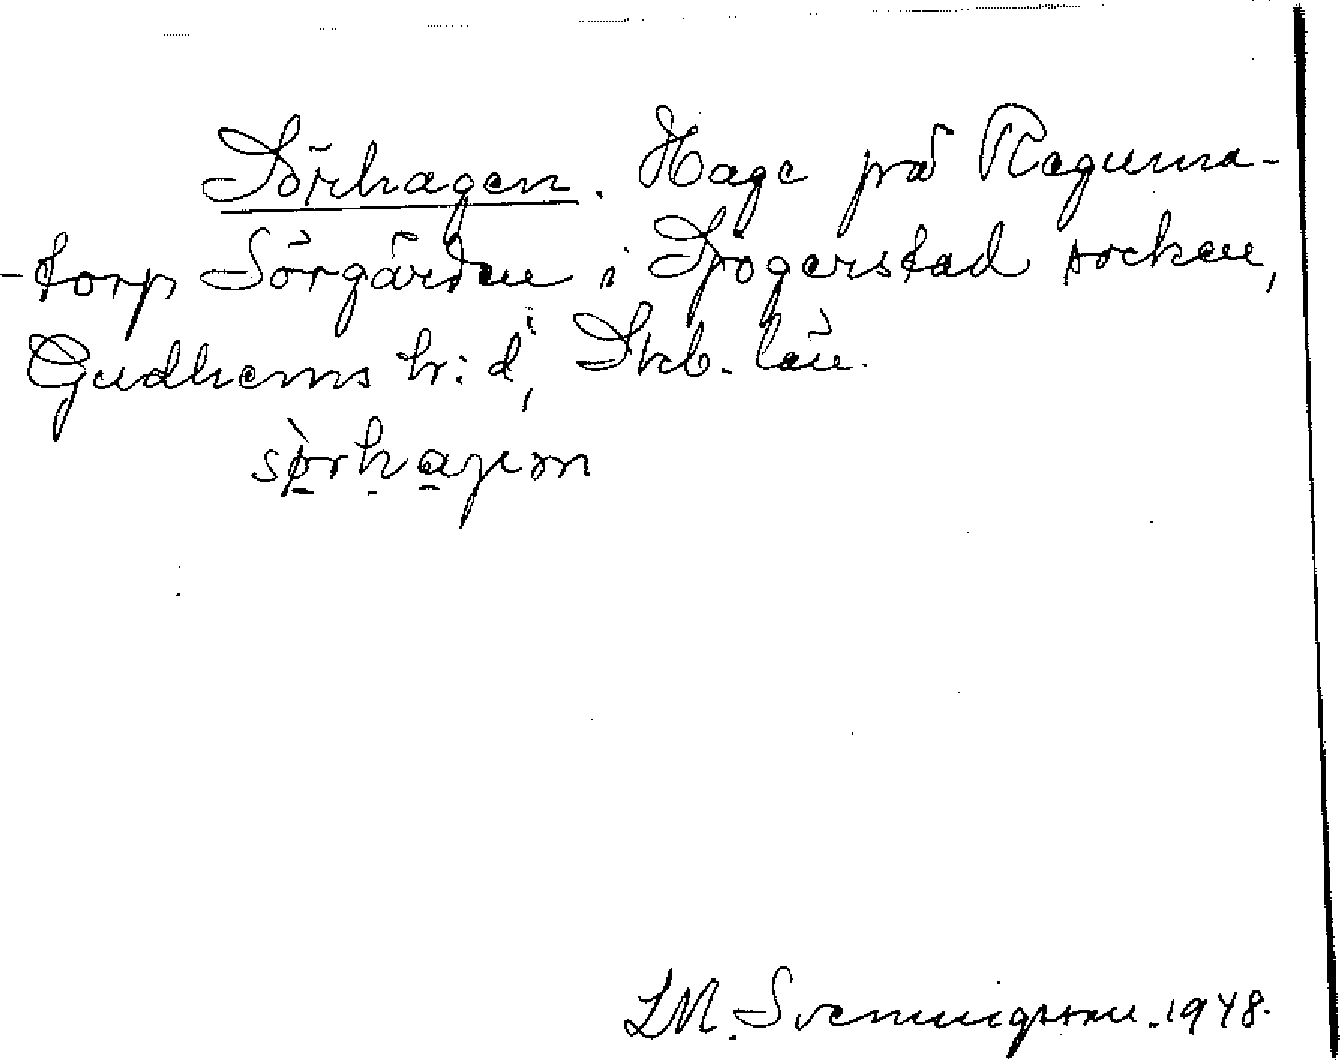 Sörhagen. Hage på Raguma-
-torp Sörgården i Segerstad socken,
Gudhems h:d, Skb. län.
L M. Svenningsson. 1948.